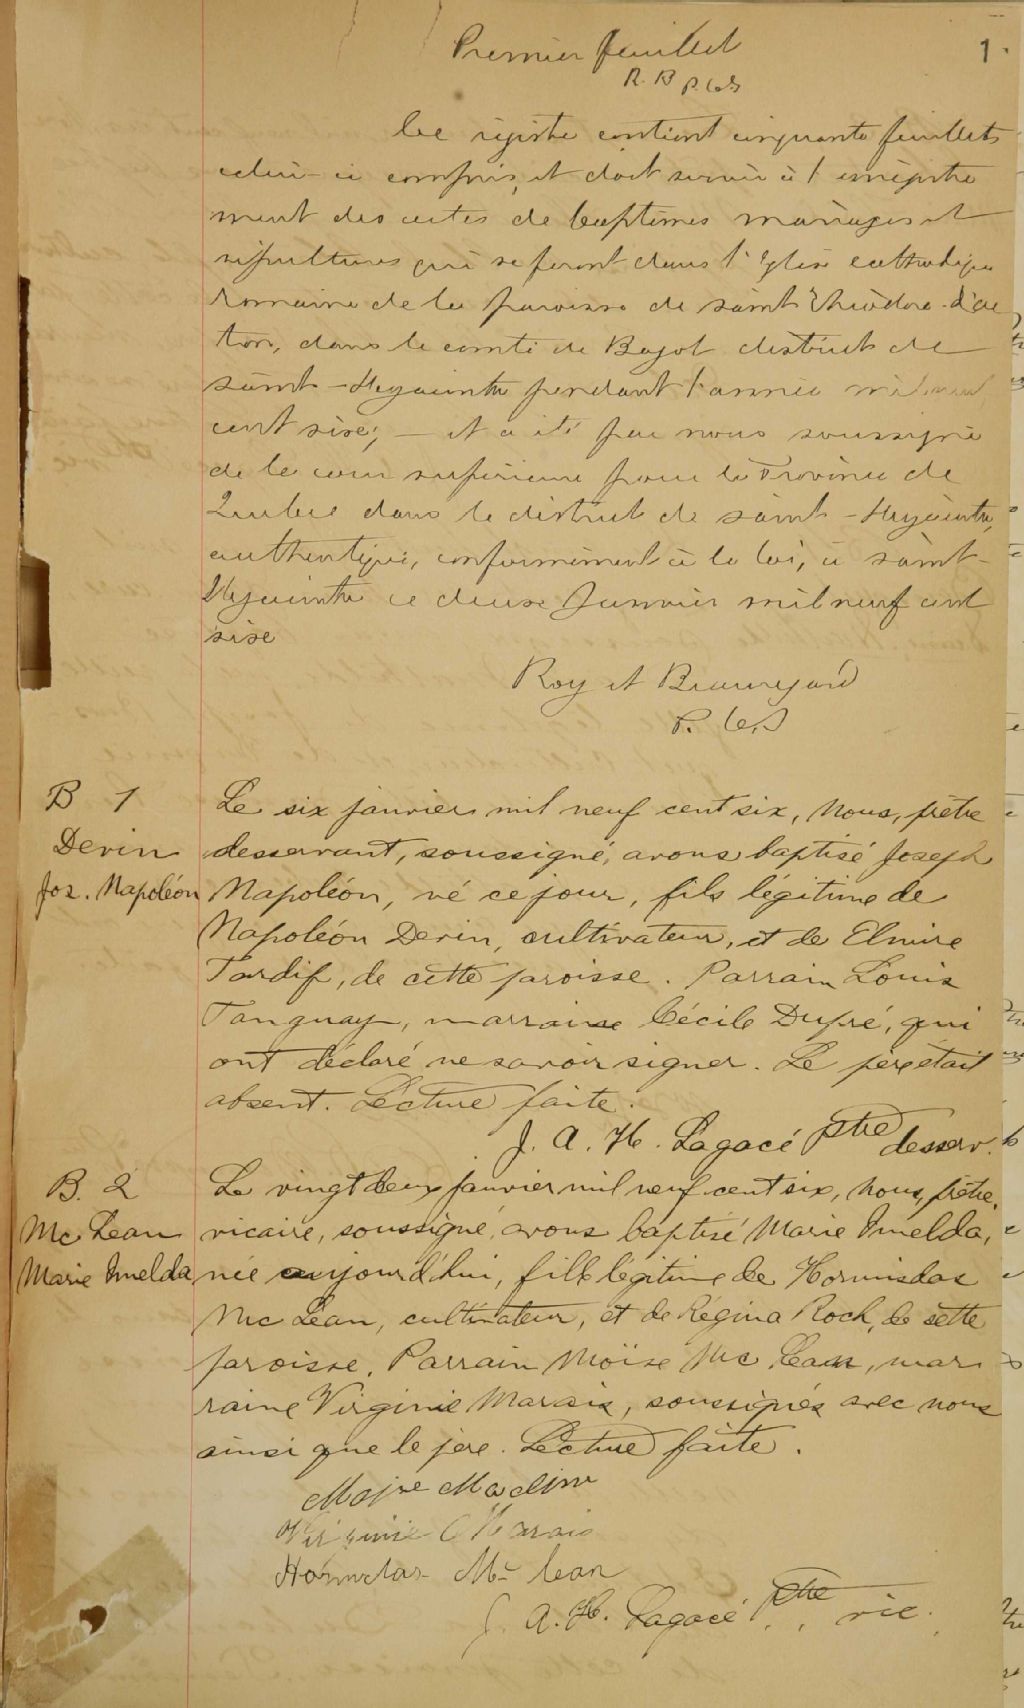 Premier feuillet
1
R. B P. C.S
Ce registre contient cinquante feuillets
celui-ci compris, et doit servir à l'enregistre
ment des actes de baptêmes mariages et
sépultures qui se feront dans l'Eglise catholique
romaine de la paroisse de saint Théodore d'Ac
ton, dans le comté de Bagot district de
saint-Hyacinthe pendant l'année mil neuf
cent sixe; — et a été par nous soussigné
de la cour supérieure pour la Province de
Quebec dans le district de saint-Hyacinthe,
authentiqué, conformément à la loi, à saint-
Hyacinthe ce deuxe Janvier mil neuf cent
sixe
Roy et Beauregard
P. C.S
B 1
Derin
Jos. Napoléon
Le six janvier mil neuf cent six, nous, prêtre
desservant, soussigné, avons baptisé Joseph
Napoléon, né ce jour, fils légitime de
Napoléon Derin, cultivateur, et de Elmire
Tardif, de cette paroisse. Parrain Louis
Tanguay, marraine Cécile Dupré, qui
ont déclaré ne savoir signer. Le père était
absent. Lecture faite.
J. A. H. Lagacé ptre desserv.
B. 2
Mc Lean
Marie Imelda
Le vingt deux janvier mil neuf cent six, nous, prêtre,
vicaire, soussigné, avons baptisé Marie Imelda,
née aujourd'hui, fille légitime de Hormisdas
Mc Lean, cultivateur, et de Régina Roch, de cette
paroisse. Parrain Moïse Mc Lean, mar
raine Virginie Marais, soussignés avec nous
ainsi que le père. Lecture faite.
Virginie Marais
Hormidas Mc lean
J. A. H. Lagacé Ptre vic.